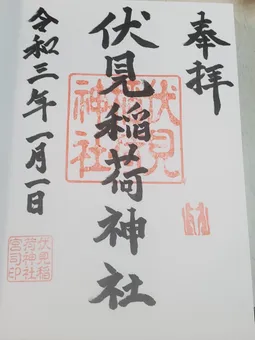 奉拝
伏見稲荷神社
令和三年一月一日
伏見
神社
伏見稲
荷神社
宮司印